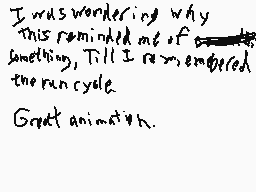 I was wondering why
this reminded me of
something, Till I remembered
the run cycle
Great animation.